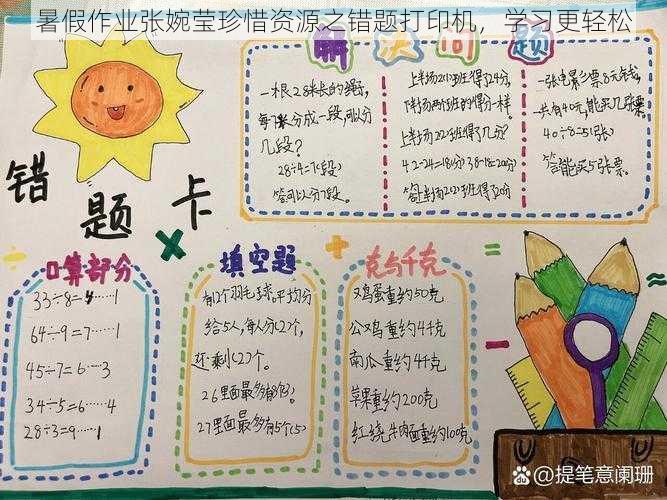 暑假作业张婉莹珍惜资源之错题打印机，学习更轻松
解决问题
一根28米长的绳子,
每7米分成一段,可以分
几段?
28÷4=7(段)
答:可以分7段。
上半场2(1)班得了24分,
下半场两个班的得分一样。
上半场2(2)班得了几分?
42-24=18(分) 38-18=20(分)
答:上半场2(2)班得了20分
一张电影票8元钱,
一共有40元,能买几张票。
40÷8=5(张)
答:能买5张票。
错题卡
口算部分
33÷8=4……1
64÷9=7……1
45÷7=6…3
34÷5=6……4
28÷3=9……1
填空题
有12个羽毛球,平均分
给5人,每人分(2)个,
还剩(2)个。
26里面最多有8个(3)。
27里面最多有5个(5)
克与千克
1只鸡蛋重约50克
1只公鸡重约4千克
南瓜重约4千克
苹果重约200克
红烧牛肉面重约100克
@提笔意阑珊